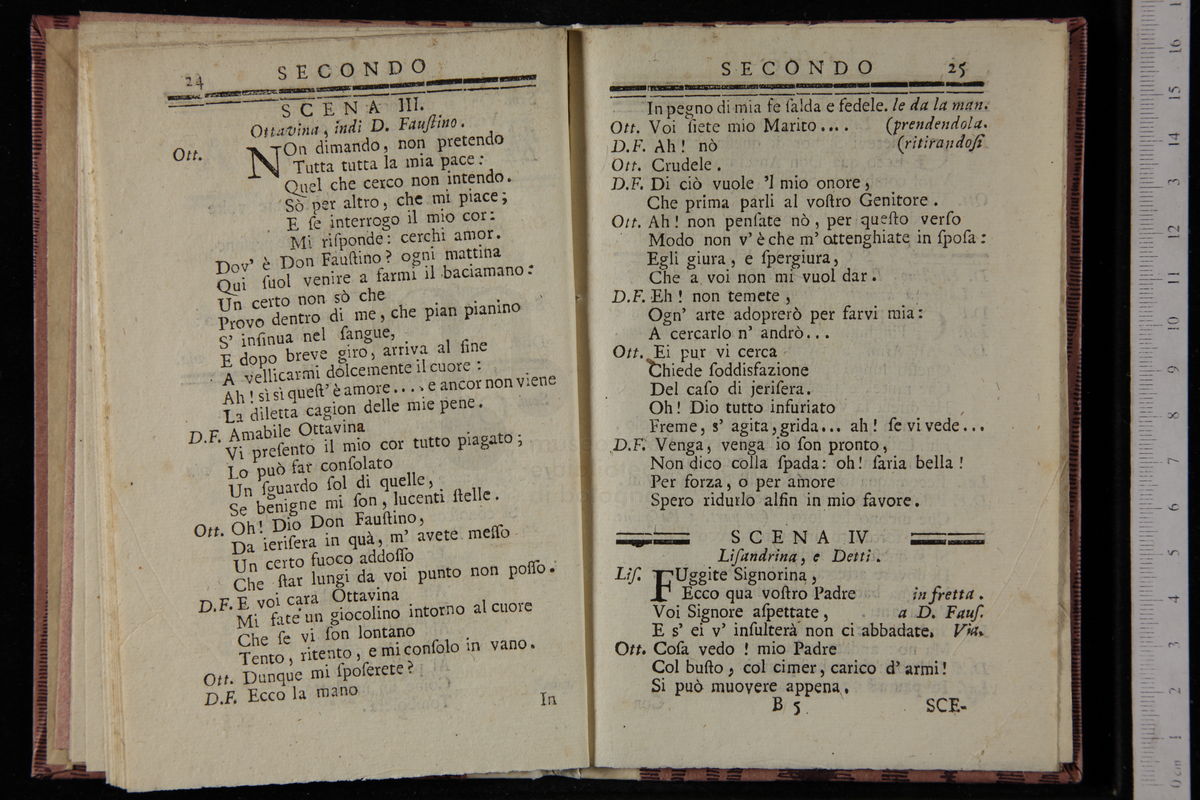 24 SECONDO
SCENA III.
Ottavina, indi D. Fauſtino.
Ott. NOn dimando, non pretendo
Tutta tutta la mia pace:
Quel che cerco non intendo.
Sò per altro, che mi piace;
E ſe interrogo il mio cor:
Mi riſponde: cerchi amor.
Dov' è Don Fauſtino? ogni mattina
Qui ſuol venire a farmi il baciamano:
Un certo non sò che
Provo dentro di me, che pian pianino
S' inſinua nel ſangue,
E dopo breve giro, arriva al fine
A vellicarmi dolcemente il cuore:
Ah! sì sì queſt' è amore.... e ancor non viene
La diletta cagion delle mie pene.
D.F. Amabile Ottavina
Vi preſento il mio cor tutto piagato;
Lo può far conſolato
Un ſguardo ſol di quelle,
Se benigne mi ſon, lucenti ſtelle.
Ott. Oh! Dio Don Fauſtino,
Da ieriſera in quà, m' avete meſſo
Un certo fuoco addoſſo
Che ſtar lungi da voi punto non poſſo.
D.F. E voi cara Ottavina
Mi fate un giocolino intorno al cuore
Che ſe vi ſon lontano
Tento, ritento, e mi conſolo in vano.
Ott. Dunque mi ſpoſerete?
D.F. Ecco la mano
In
SECONDO 25
In pegno di mia fe ſalda e fedele. le da la man.
Ott. Voi ſiete mio Marito.... (prendendola.
D.F. Ah! nò (ritirandoſi
Ott. Crudele.
D.F. Di ciò vuole 'l mio onore,
Che prima parli al voſtro Genitore.
Ott. Ah! non penſate nò, per queſto verſo
Modo non v' è che m' ottenghiate in ſpoſa:
Egli giura, e ſpergiura,
Che a voi non mi vuol dar.
D.F. Eh! non temete,
Ogn' arte adoprerò per farvi mia:
A cercarlo n' andrò...
Ott. Ei pur vi cerca
Chiede ſoddisfazione
Del caſo di jeriſera.
Oh! Dio tutto infuriato
Freme, s' agita, grida... ah! ſe vi vede...
D.F. Venga, venga io ſon pronto,
Non dico colla ſpada: oh! ſaria bella!
Per forza, o per amore
Spero ridurlo alfin in mio favore.
SCENA IV
Liſandrina, e Detti.
Liſ. FUggite Signorina,
Ecco qua voſtro Padre in fretta.
Voi Signore aſpettate, a D. Fauſ.
E s' ei v' inſulterà non ci abbadate. Via.
Ott. Coſa vedo! mio Padre
Col buſto, col cimer, carico d' armi!
Si può muovere appena.
B 5 SCE-